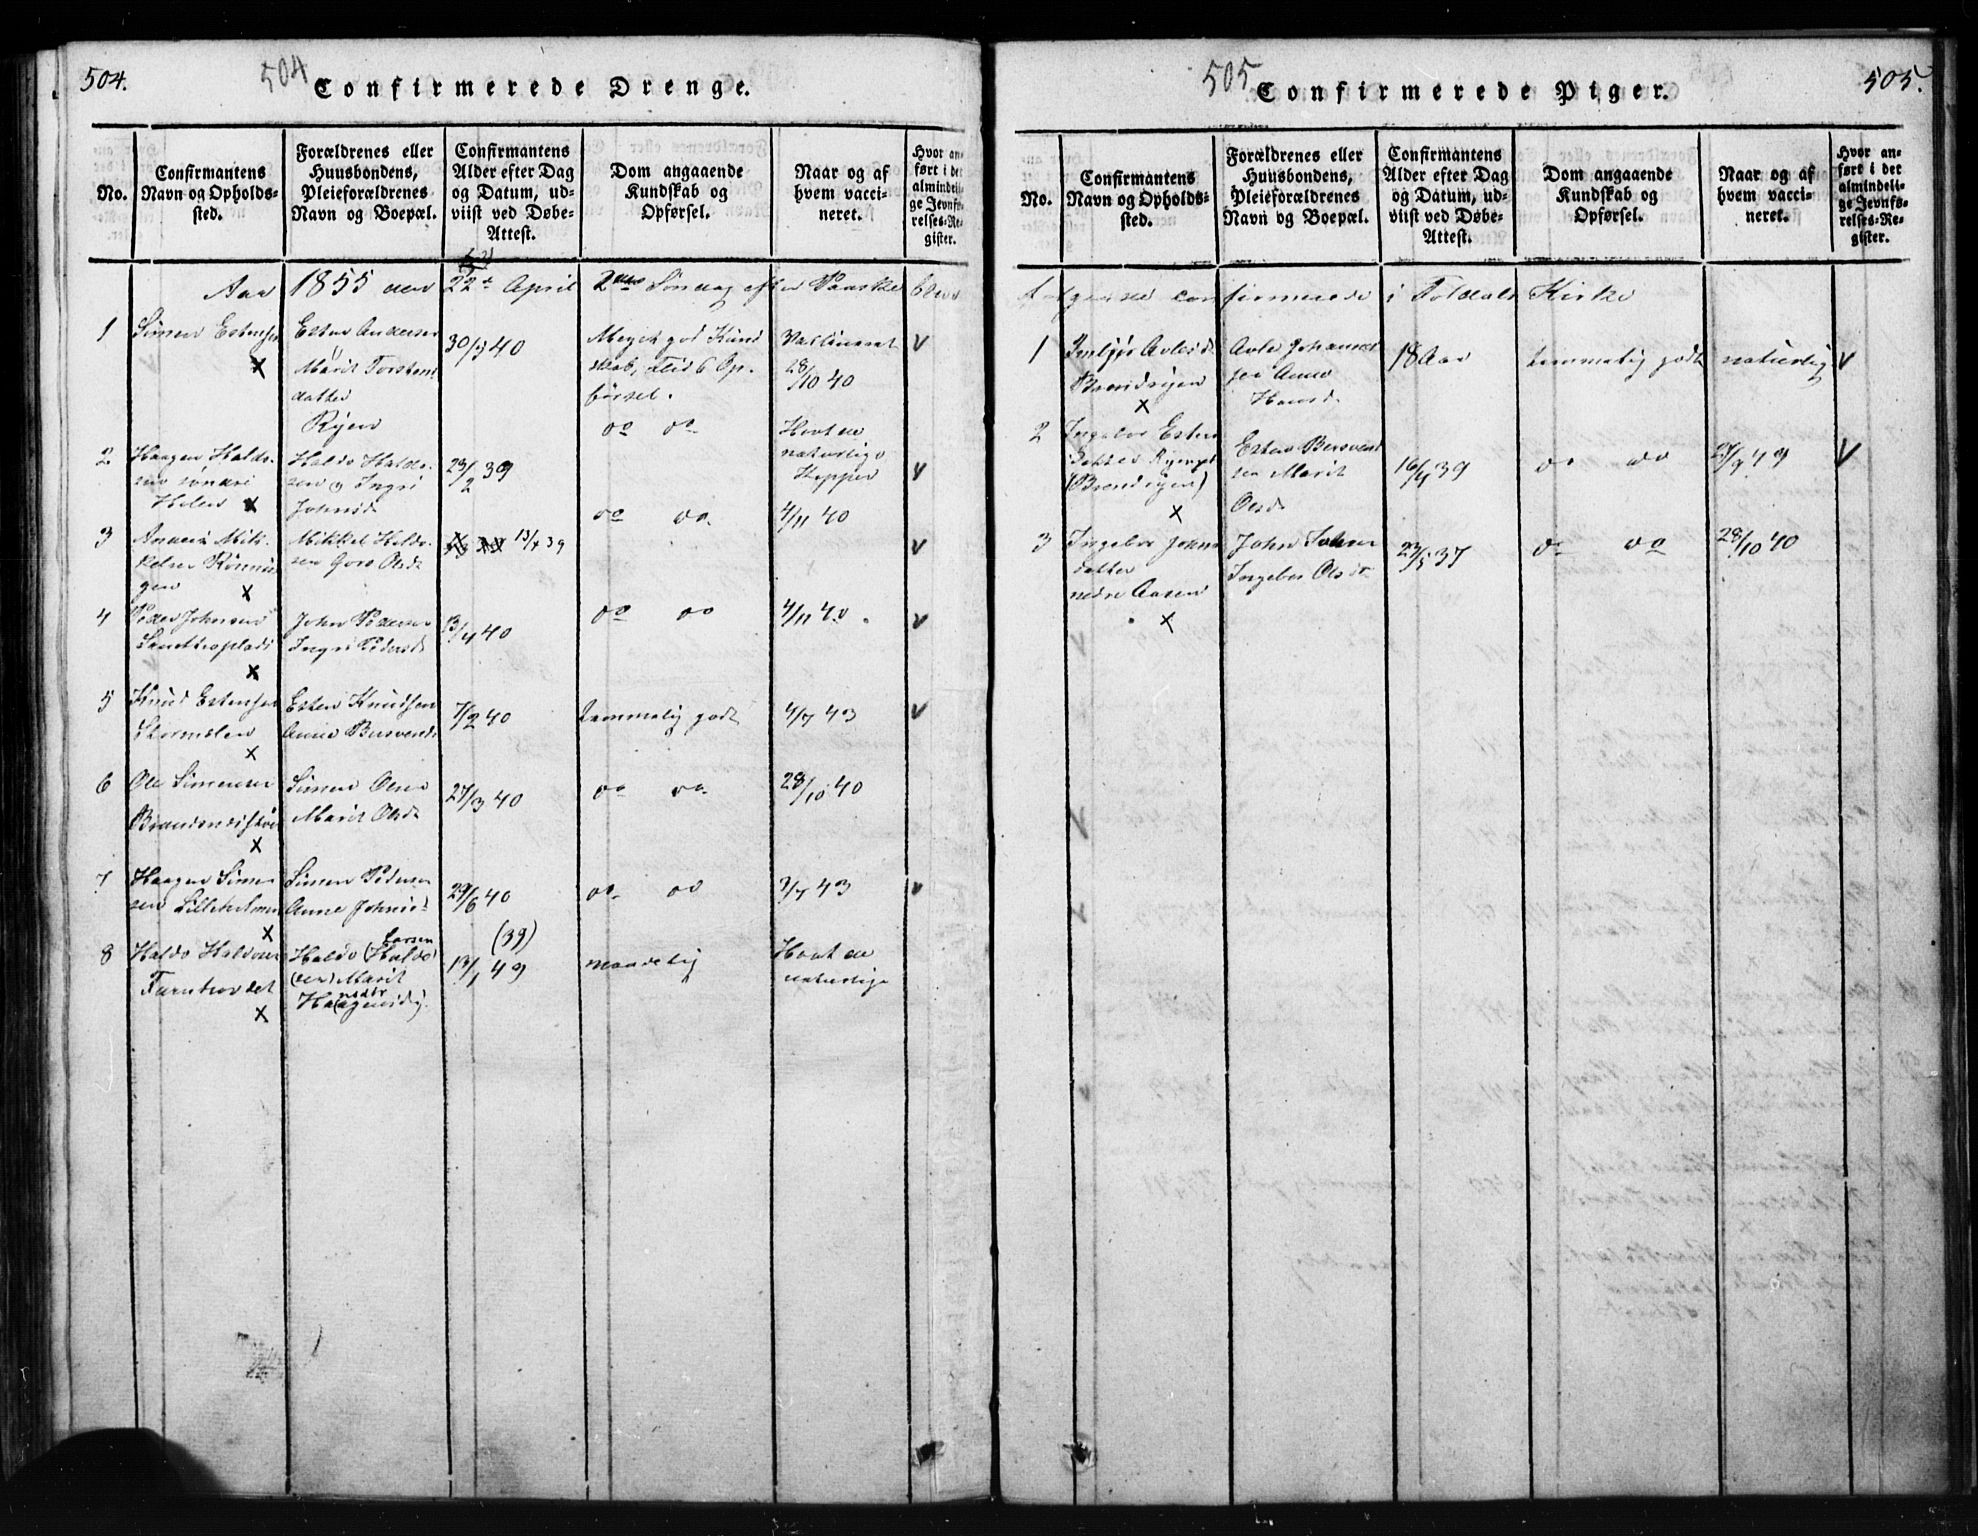 504.
504
Confirmerede Drenge.
No.
Confirmantens
Navn og Opholds-
sted.
Forældrenes eller
Huusbondens,
Pleieforældrenes
Navn og Boepæl.
Confirmantens
Alder efter Dag
og Datum, ud-
viist ved Døbe-
Attest.
Dom angaaende
Kundskab og
Opførsel.
Naar og af
hvem vacci-
neret.
Hvor an-
ført i det
almindeli-
ge Jevnfø-
relses-Re-
gister.
Aar 1855 den 22 April 2den Søndag efter Paaske bleve
1
Simen Estensen
x
Esten Andersen
Marit Torstens
datter
Ryen
30/7 40
Meget god Kund
skab, Flid & Op-
førsel.
Vaccineret
28/10 40
v
2
Haagen Haldo-
sen søndre
Holen x
Haldo Haldo-
sen og Ingri
Johnsd.
23/2 39
do do
Havt de
naturlige
Kopper
v
3
Mik-
kelsen Rønnin
gen x
Mikkel Haldo-
sen Goro Olsd.
13/7 39
do do.
4/11 40
v
4
Peder Johnsen
x
John Pedersen
Ingri Pedersd.
13/4 40
do do
4/11 40.
v
5
Knud Estensen
Stormolen
x
Esten Knudsen
Anne Bersvends
7/2 40
temmelig godt
4/7 43
v
6
Ole Simensen
x
Simen Olsen
Marit Olsd.
27/3 40
do do.
28/10 40
7
Haagen Simen
sen Lilleholmen
x
Simen Pedersen
Anne Johnsd.
29/6 40
do. do
3/7 43
v
8
Haldo Haldosen
Turutrøvdet
x
Larsen
Haldo (Haldo
sen) Marit
Haagensd.
(39)
13/1 49
maadelig
Havt de
naturlige
505
Confirmerede Piger.
505.
No.
Confirmantens
Navn og Opholds-
sted.
Forældrenes eller
Huusbondens,
Pleieforældrenes
Navn og Boepæl.
Confirmantens
Alder efter Dag
og Datum, ud-
viist ved Døbe-
Attest.
Dom angaaende
Kundskab og
Opførsel.
Naar og af
hvem vacci-
neret.
Hvor an-
ført i det
almindeli-
ge Jevnfø-
relses-Re-
gister.
følgende confirmerede i Foldals Kirke
1
Imbjør Avlesd.
Brendryen
x
Avle Johannes
sen Anne
Hansd.
18 Aar
temmelig godt
naturlig
v
2
Ingebor Esten
datter
(Brendryen)
x
Esten Bersvend
sen Marit
Olsd.
16/4 39
do do
27/9 49
v
3
Ingebor Johns
datter
nedre Aasen
x
John Johnsen
Ingebor Olsdr.
23/5 37
do do
28/10 40